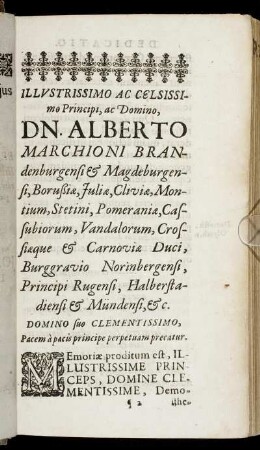 ILLVSTRISSIMO AC CELSISSI-
mo Principi, ac Domino,
DN. ALBERTO
MARCHIONI BRAN-
denburgensi & Magdeburgen-
si, Borußiæ, Juliæ, Cliviæ, Mon-
tium, Stetini, Pomeraniæ, Cas-
subiorum, Vandalorum, Cros-
siæque & Carnoviæ Duci,
Burggravio Norinbergensi,
Principi Rugensi, Halbersta-
diensi & Mündensi, &c.
DOMINO suo CLEMENTISSIMO,
Pacem à pacis principe perpetuam precatur.
MEmoriæ proditum est, IL-
LUSTRISSIME PRIN-
CEPS, DOMINE CLE-
MENTISSIME, Demo-
q 2
sthe-
jus